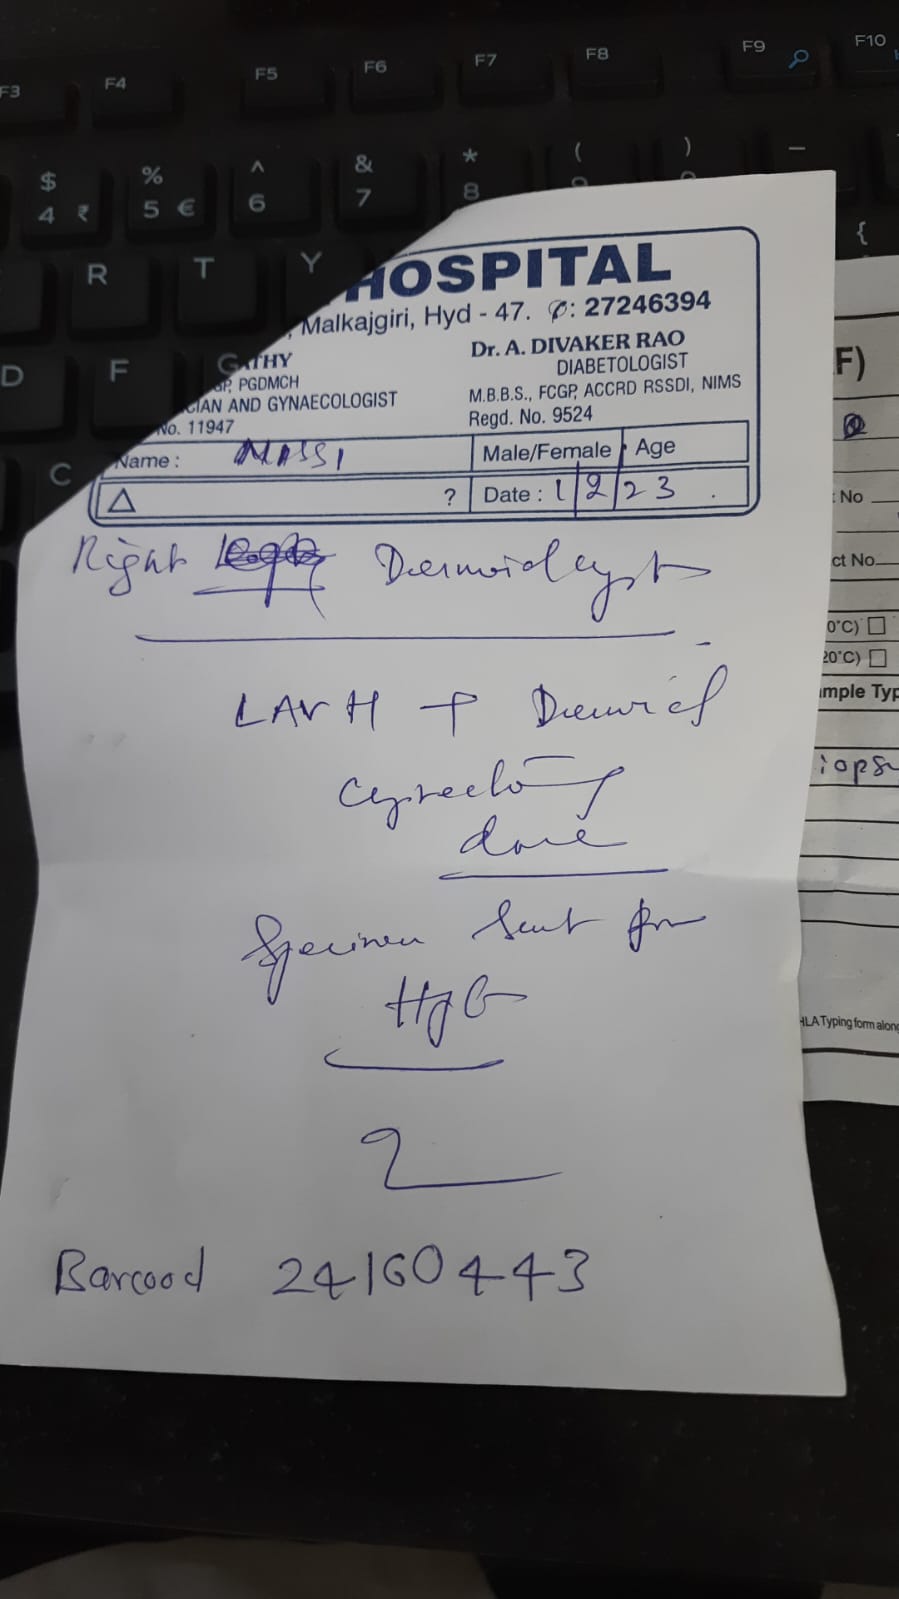 F3 F4 F5 F6 F7 F8 F9 F10
$ % ^ & * ( ) _
4 ₹ 5 € 6 7 8
R T Y {
D F G
C
HOSPITAL
, Malkajgiri, Hyd - 47. ✆: 27246394
ATHY
GP, PGDMCH
CIAN AND GYNAECOLOGIST
No. 11947
Dr. A. DIVAKER RAO
DIABETOLOGIST
M.B.B.S., FCGP, ACCRD RSSDI, NIMS
Regd. No. 9524
Name : Male/Female Age
△ ? Date : 1/2/23
Right Dermoid cyst
LAVH + Dermoid
cystectomy
done
Specimen sent for
2
Barcood 24160443
F)
No
ct No
0°C)
20°C)
mple Typ
iops
HLA Typing form along